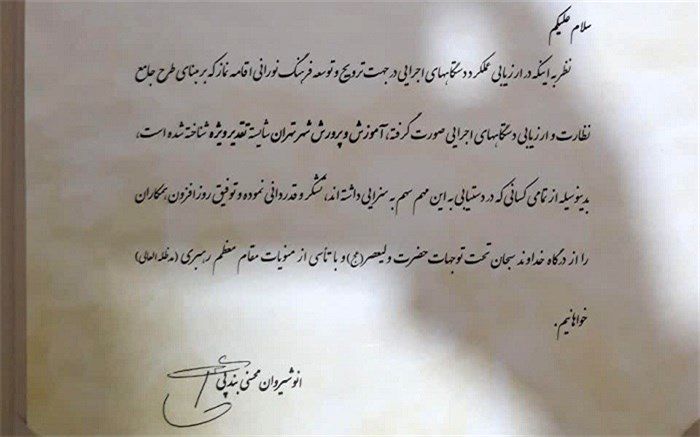 سلام علیکم
نظر به اینکه در ارزیابی عملکرد دستگاههای اجرایی در جهت ترویج و توسعه فرهنگ نورانی اقامه نماز که بر مبنای طرح جامع
نظارت و ارزیابی دستگاههای اجرایی صورت گرفته، آموزش و پرورش شهر تهران شایسته تقدیر ویژه شناخته شده است،
بدینوسیله از تمامی کسانی که در دستیابی به این مهم سهم به سزایی داشته اند، تشکر و قدردانی نموده و توفیق روز افزون همکاران
را از درگاه خداوند سبحان تحت توجهات حضرت ولیعصر (عج) و با تأسی از منویات مقام معظم رهبری (مدظله العالی)
خواهانیم.
انوشیروان محسنی بندپی